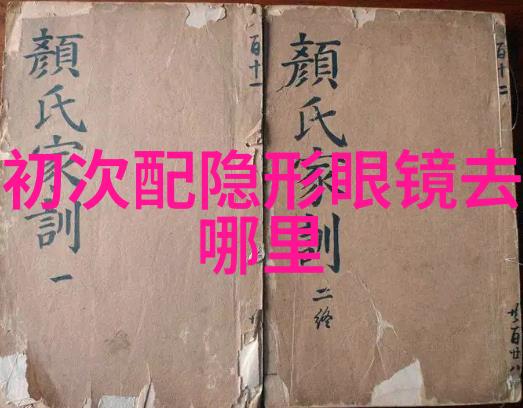 初次配隐形眼镜去
哪里
顏氏家訓 一
百十一
顏氏家訓 二終
百十二